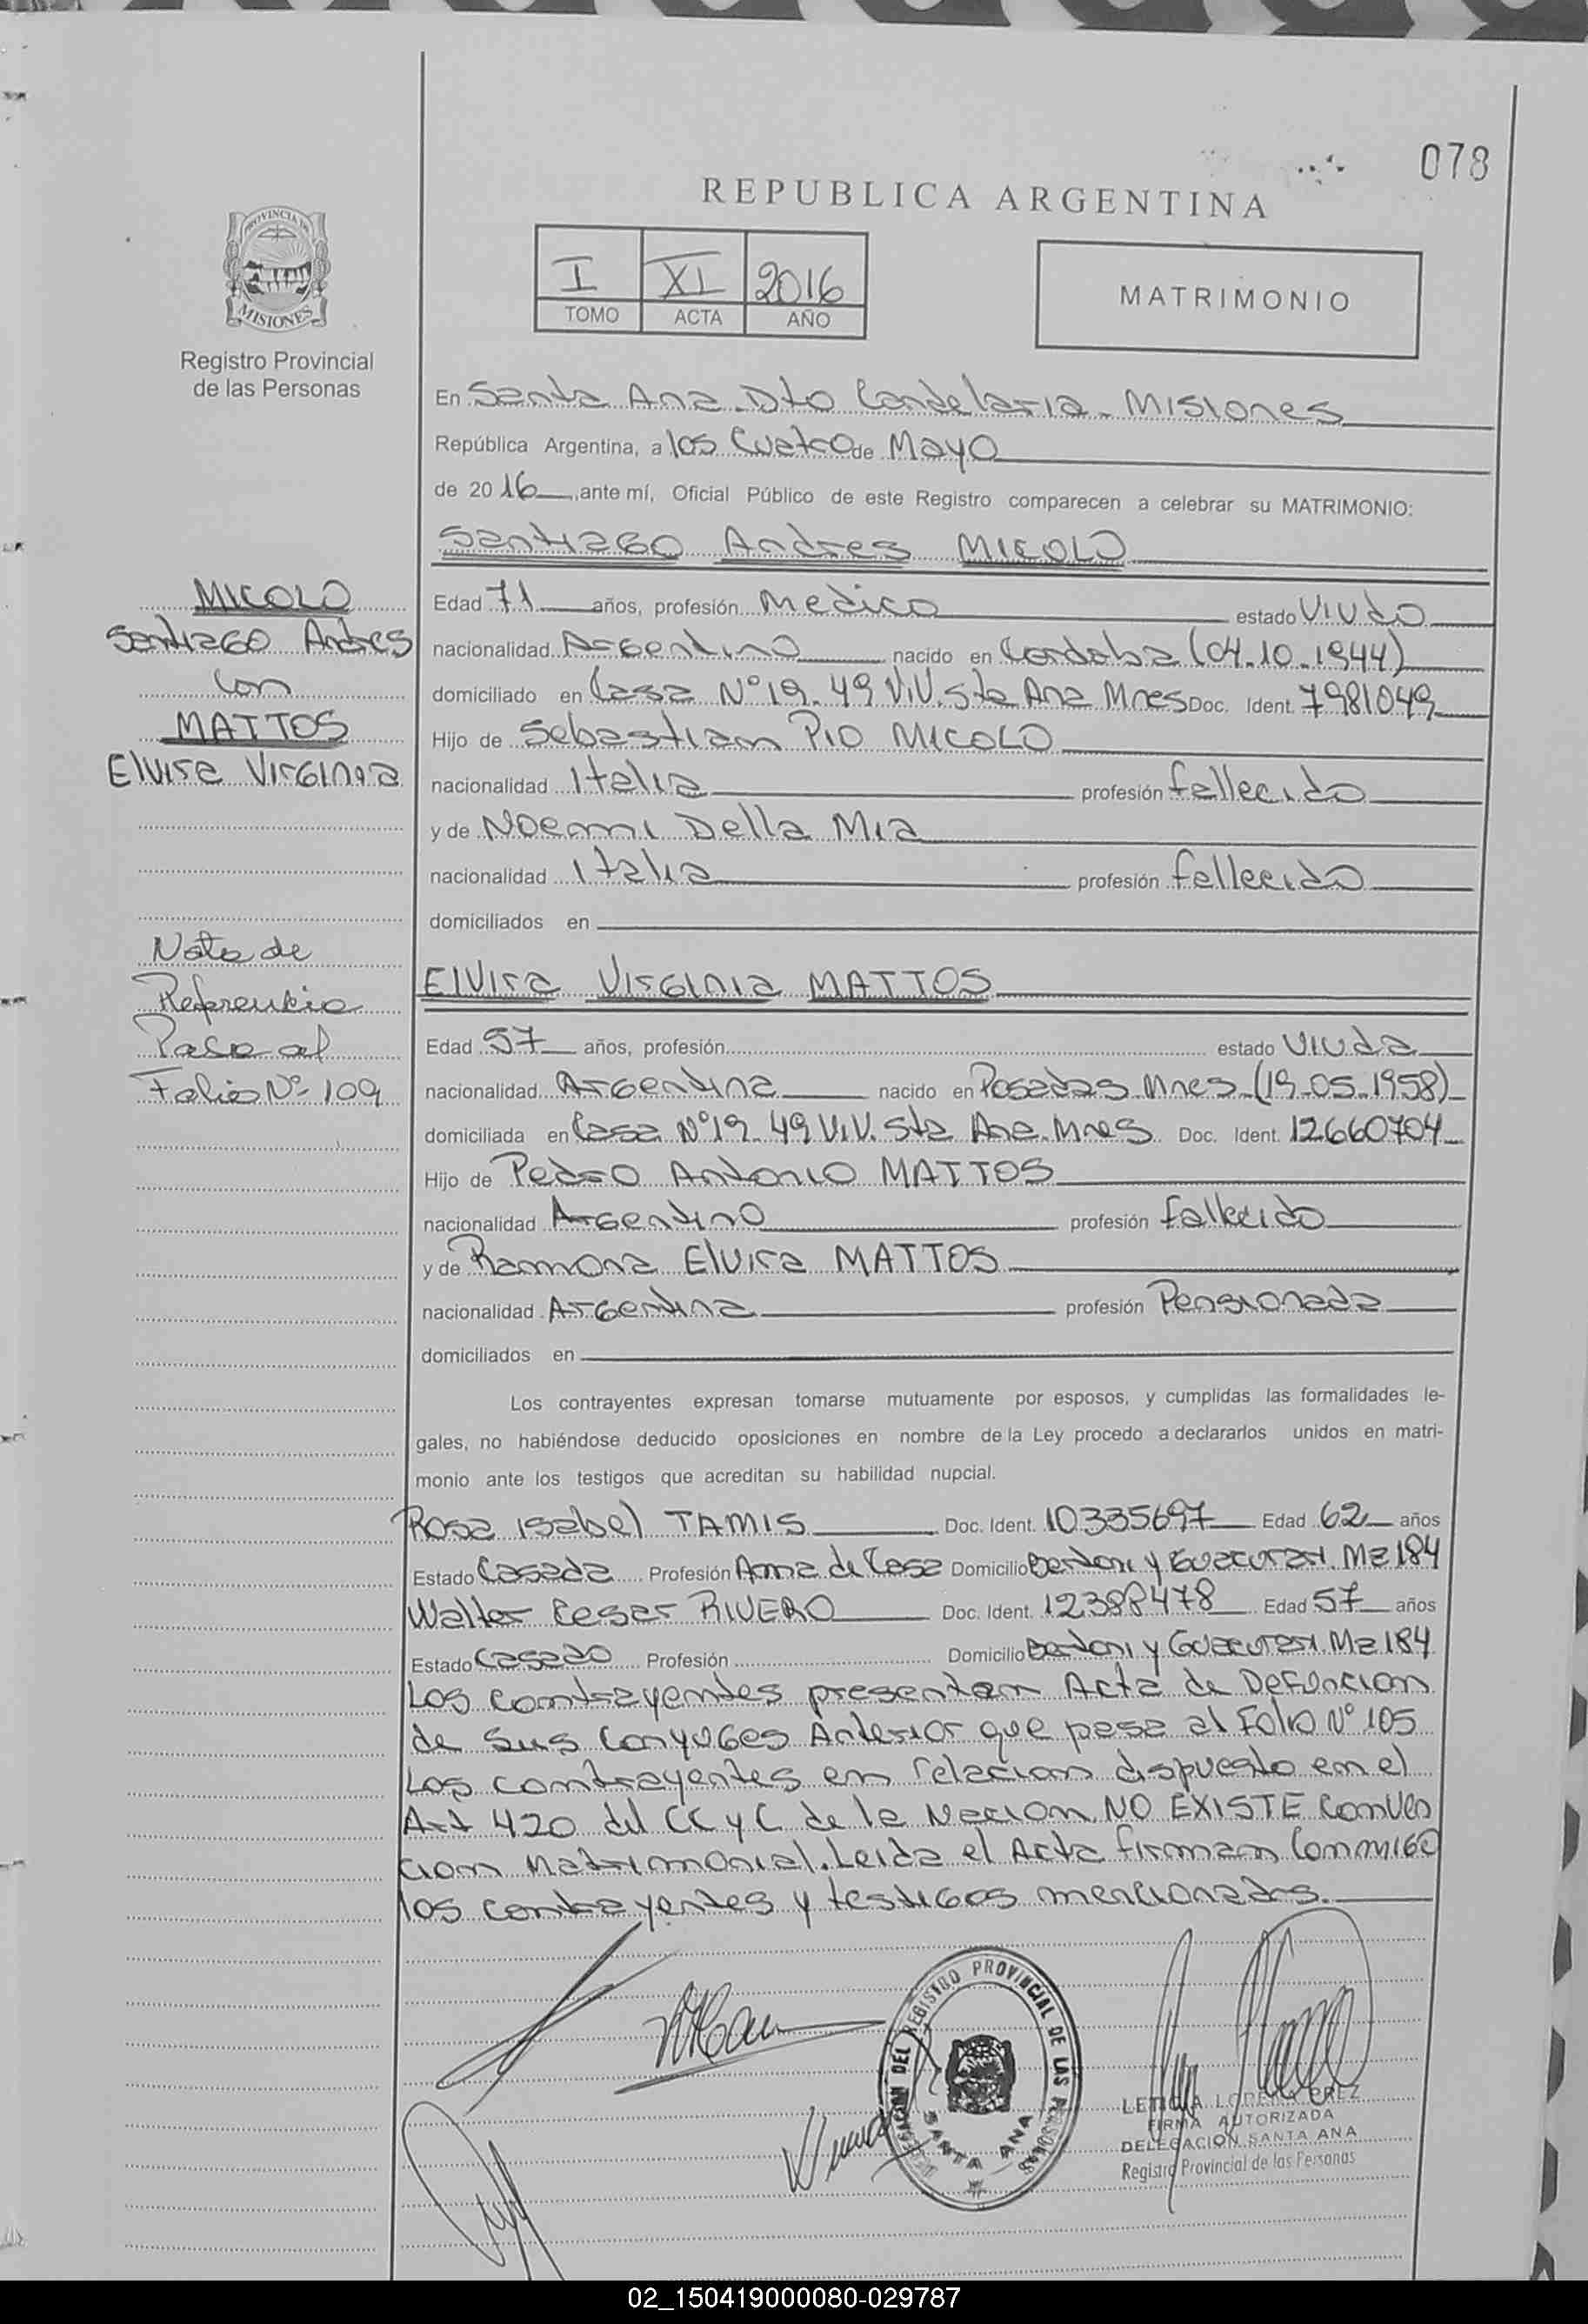 078
REPUBLICA ARGENTINA
I XI 2016
TOMO ACTA AÑO
MATRIMONIO
PROVINCIA DE
MISIONES
Registro Provincial
de las Personas
En Santa Ana Dto Candelaria - Misiones
República Argentina, a los Cuatro de Mayo
de 2016, ante mí, Oficial Público de este Registro comparecen a celebrar su MATRIMONIO:
Santiago Andres MICOLO
MICOLO
Santiago Andres
Con
MATTOS
Elvira Virginia
Edad 71 años, profesión Medico estado Viudo
nacionalidad Argentino nacido en Cordoba (04.10.1944)
domiciliado en Casa N°19. 49 Viv. Sta Ana Mnes Doc. Ident. 7981049
Hijo de Sebastian Pio MICOLO
nacionalidad Italia profesión fallecido
y de Noemi Della Mia
nacionalidad Italia profesión fallecido
domiciliados en
Nota de
Referencia
Pasa al
Folio Nº 109
Elvira Virginia MATTOS
Edad 57 años, profesión estado Viuda
nacionalidad Argentina nacido en Posadas Mnes (19-05-1958)
domiciliada en Casa N°19. 49 Viv. Sta Ana. Mnes Doc. Ident. 12660704
Hijo de Pedro Antonio MATTOS
nacionalidad Argentino profesión fallecido
y de Ramona Elvira MATTOS
nacionalidad Argentina profesión Pensionada
domiciliados en
Los contrayentes expresan tomarse mutuamente por esposos, y cumplidas las formalidades le-
gales, no habiéndose deducido oposiciones en nombre de la Ley procedo a declararlos unidos en matri-
monio ante los testigos que acreditan su habilidad nupcial.
Rosa Isabel TAMIS Doc. Ident. 10335697 Edad 62 años
Estado Casada Profesión Ama de Casa Domicilio Bertoni y Guacurari Mz 184
Walter Cesar RIVERO Doc. Ident. 12388478 Edad 57 años
Estado Casado Profesión Domicilio Bertoni y Guacurari Mz 184
Los contrayentes presentan Acta de Defuncion
de Sus Conyuges Anterior que pasa al Folio N° 105
Los contrayentes en relacion dispuesto en el
Art 420 del CC y C de la Nacion NO EXISTE Conven
cion Matrimonial. Leida el Acta firman Conmigo
los contrayentes y testigos mencionados.
DELEGACION DEL REGISTRO PROVINCIAL DE LAS PERSONAS
SANTA ANA
LETICIA LORENA
FIRMA AUTORIZADA
DELEGACION SANTA ANA
Registro Provincial de las Personas
02_150419000080-029787